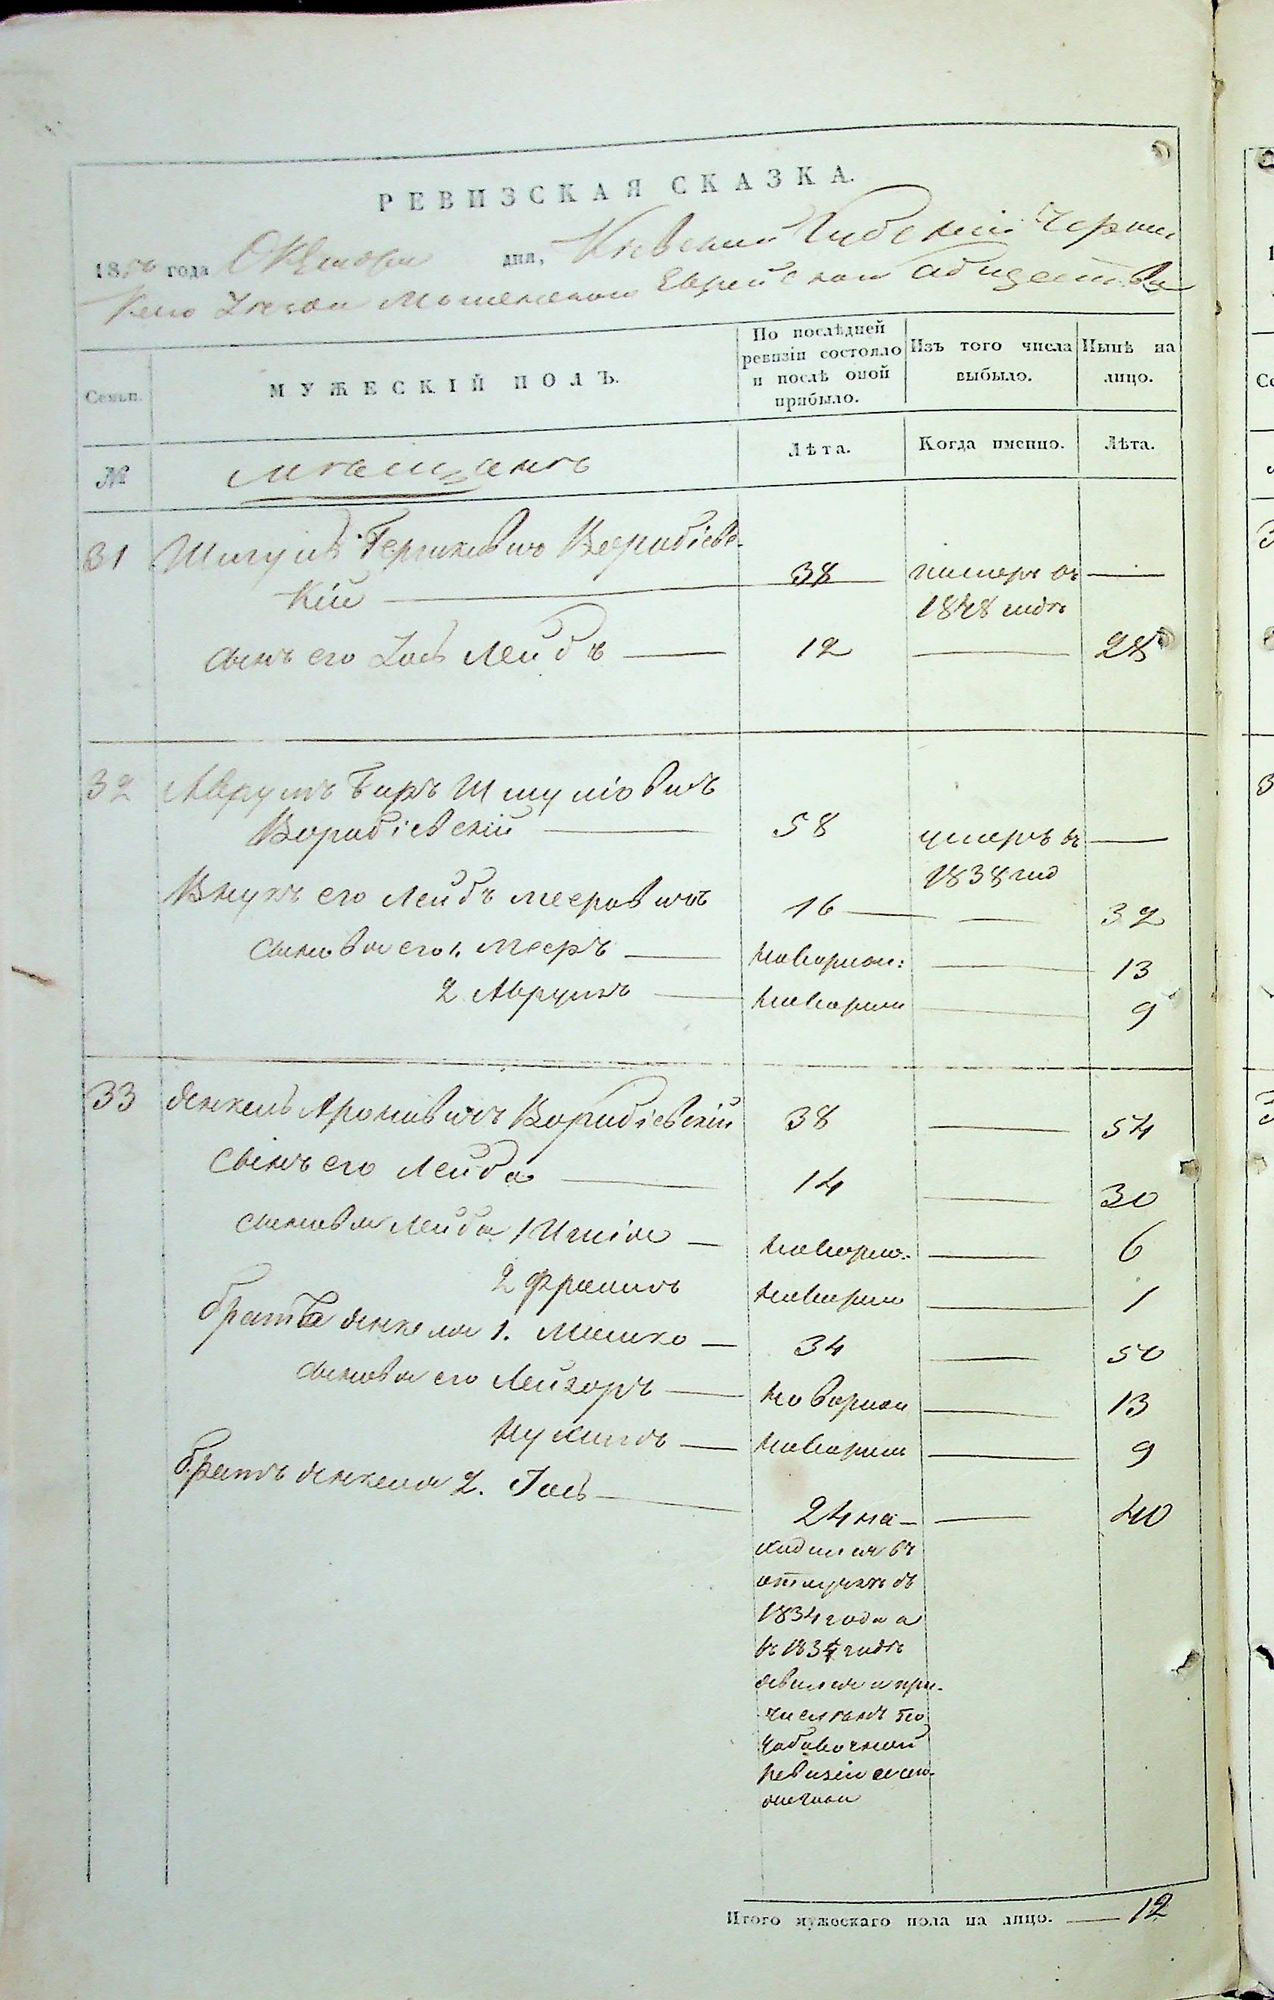 РЕВИЗСКАЯ СКАЗКА.
1850 года Октября дня, Кіевской Губерніи Черкас
каго Уезда Мошенскаго Еврейскаго Общества
Семьи.
МУЖЕСКІЙ ПОЛЪ.
По послѣдней
ревизіи состояло
и послѣ оной
прибыло.
Изъ того числа
выбыло.
Нынѣ на
лицо.
№
мещанъ
Лѣта.
Когда именно.
Лѣта.
31 Шмуль Гершковичъ Ворабіевс-
кій — 38 умеръ въ —
1848 годѣ
сынъ его Лейбъ — 12 — 28
32 Аврумъ Беръ Шмуліовичъ
Ворабіевскій — 58 умеръ въ —
1838 год
Внукъ его Лейбъ Мееровичъ 16 — — 32
сыновья его 1. Мееръ — новорож: — 13
2 Аврумъ — новорож — 9
33 Янкель Ароновичъ Ворабіевскій 38 — 54
Сынъ его Лейба — 14 — 30
сыновья Лейба 1 — новорож: — 6
2 новорож — 1
братья Янкеля 1. Мошко — 34 — 50
сыновья его Лейзоръ — новорож — 13
Нухимъ — новорож — 9
братъ Янкеля 2. Іось — 24 на- — 40
ходился въ
отлучкѣ съ
1834 года а
въ 183 годѣ
явился и при-
численъ по
добавочной
ревизіи
Итого мужескаго пола на лицо. — 12